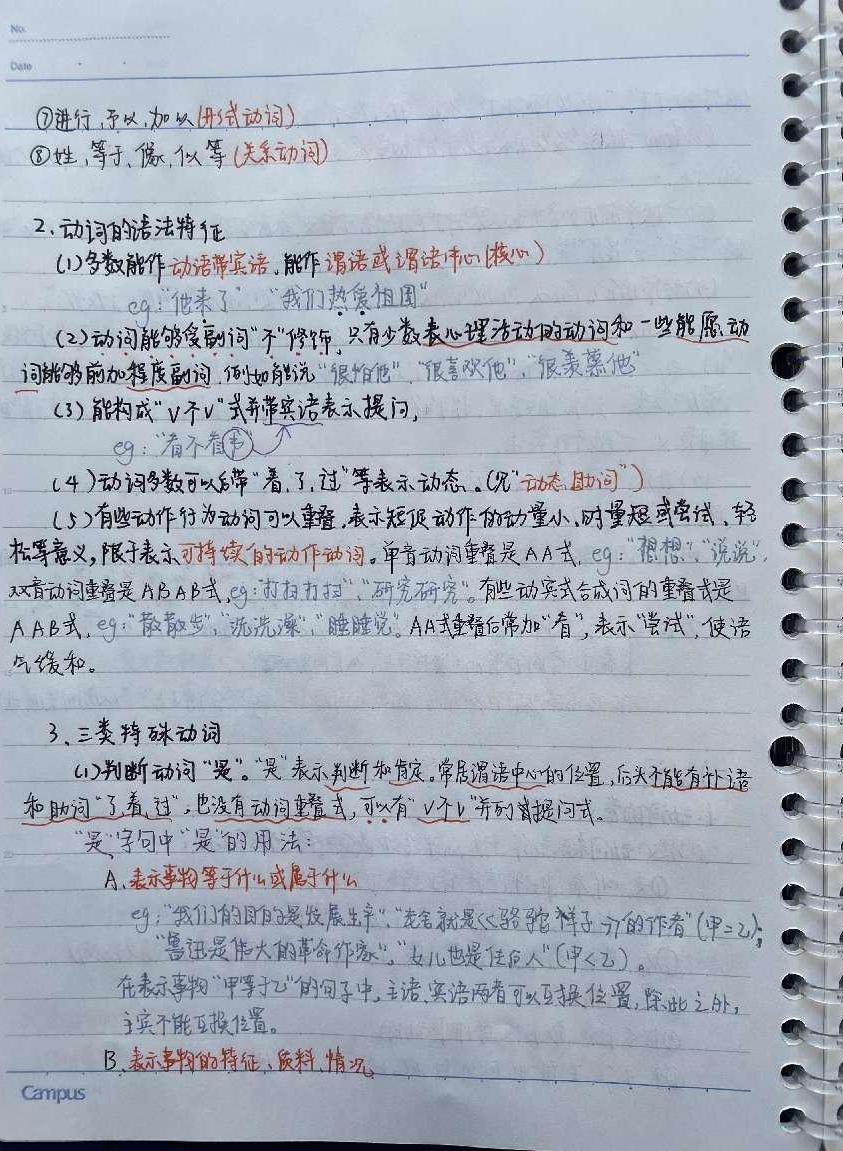 No.
Date
⑦进行、予以、加以(形式动词)
⑧姓、等于、像、似等(关系动词)
2、动词的语法特征
(1)多数能作动语带宾语,能作谓语或谓语中心(核心)
eg:“他来了”“我们热爱祖国”
(2)动词能够受副词“不”修饰,只有少数表心理活动的动词和一些能愿动
词能够前加程度副词,例如能说“很怕他”、“很喜欢他”、“很羡慕他”
(3)能构成“V不V”式并带宾语表示提问,
eg:“看不看书”
(4)动词多数可以后带“着、了、过”等表示动态。(见“动态助词”)
(5)有些动作行为动词可以重叠,表示短促动作的动量小、时量短或尝试、轻
松等意义,限于表示可持续的动作动词。单音动词重叠是AA式,eg:“想想”、“说说”,
双音动词重叠是ABAB式,eg:“打扫打扫”、“研究研究”。有些动宾式合成词的重叠式是
AAB式,eg:“散散步”、“洗洗澡”、“睡睡觉”。AA式重叠后常加“看”,表示“尝试”,使语
气缓和。
3、三类特殊动词
(1)判断动词“是”。“是”表示判断和肯定。常居谓语中心的位置,后头不能有补语
和助词“了、着、过”,也没有动词重叠式,可以有“V不V”并列式提问式。
“是”字句中“是”的用法:
A、表示事物等于什么或属于什么
eg:“我们的目的是发展生产”、“老舍就是《骆驼祥子》的作者”(甲=乙);
“鲁迅是伟大的革命作家”、“女儿也是后人”(甲<乙)。
在表示事物“甲等于乙”的句子中,主语、宾语两者可以互换位置,除此之外,
主宾不能互换位置。
B、表示事物的特征、质料、情况
Campus